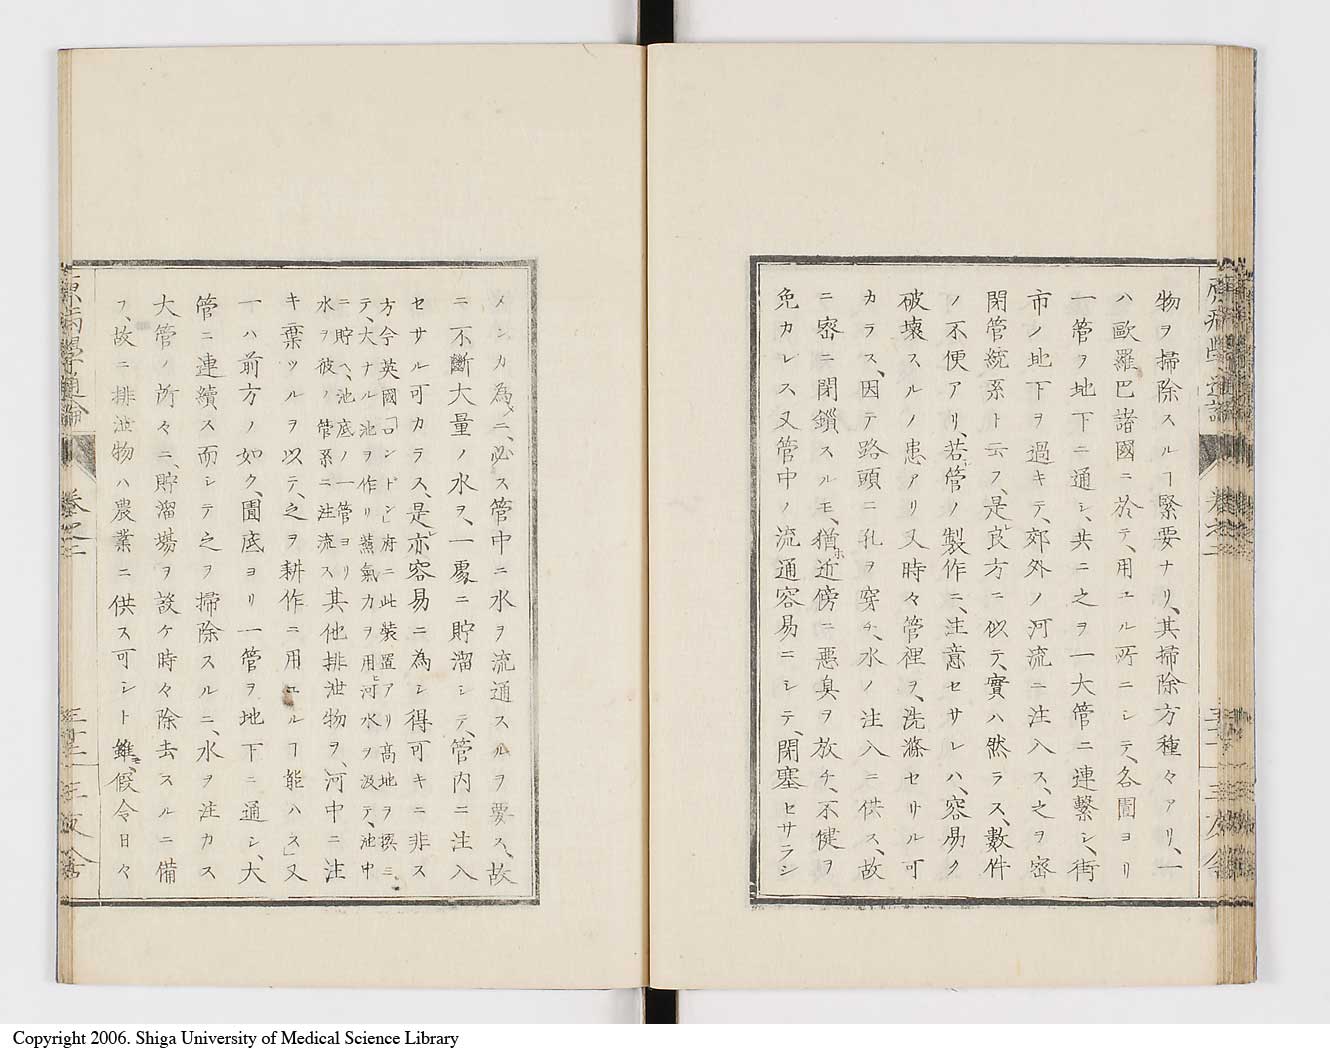 物ヲ掃除スルヿ緊要ナリ、其掃除方種々アリ、一
ハ歐羅巴諸國ニ於テ、用ユル所ニシテ、各圊ヨリ
一管ヲ地下ニ通シ、共ニ之ヲ一大管ニ連繋シ、街
市ノ地下ヲ過キテ、郊外ノ河流ニ注入ス、之ヲ密
閉管統系ト云フ、是レ良方ニ似テ、實ハ然ラス、數件
ノ不便アリ、若管ノ製作ニ、注意セサレハ、容易ク
破壞スルノ患アリ又時々管裡ヲ、洗滌セサル可
カラス、因テ路頭ニ孔ヲ穿チ、水ノ注入ニ供ス、故
ニ密ニ閉鎖スルモ、猶ホ近傍ニ悪臭ヲ放チ、不健ヲ
免カレス又管中ノ流通容易ニシテ、閉塞セサラシ
ノンカ為メニ、必ス管中ニ水ヲ流通スルヲ要ス、故
ニ不斷大量ノ水ヲ、一處ニ貯溜シテ、管内ニ注入
セサル可カラス、是レ亦容易ニ為シ得可キニ非ス
方今英國「ロンドン」府ニ此裝置アリ高地ヲ撰ミ、
テ、大ナル池ヲ作リ蒸氣力ヲ用ヒ河水ヲ汲テ、池中
ニ貯ヘ、池底ノ一管ヨリ
水ヲ彼ノ管系ニ注流ス其他排泄物ヲ、河中ニ注
キ棄ツルヲ以テ、之ヲ耕作ニ用ユルヿ能ハス」又
一ハ前方ノ如ク、圊底ヨリ一管ヲ地下ニ通シ、大
管ニ連續ス而シテ之ヲ掃除スルニ、水ヲ注カス
大管ノ所々ニ、貯溜場ヲ設ケ時々除去スルニ備
フ、故ニ排泄物ハ農業ニ供ス可シト雖モ、假令日々
原病學通論
卷之二
三十二
三友舍
Copyright 2006. Shiga University of Medical Science Library